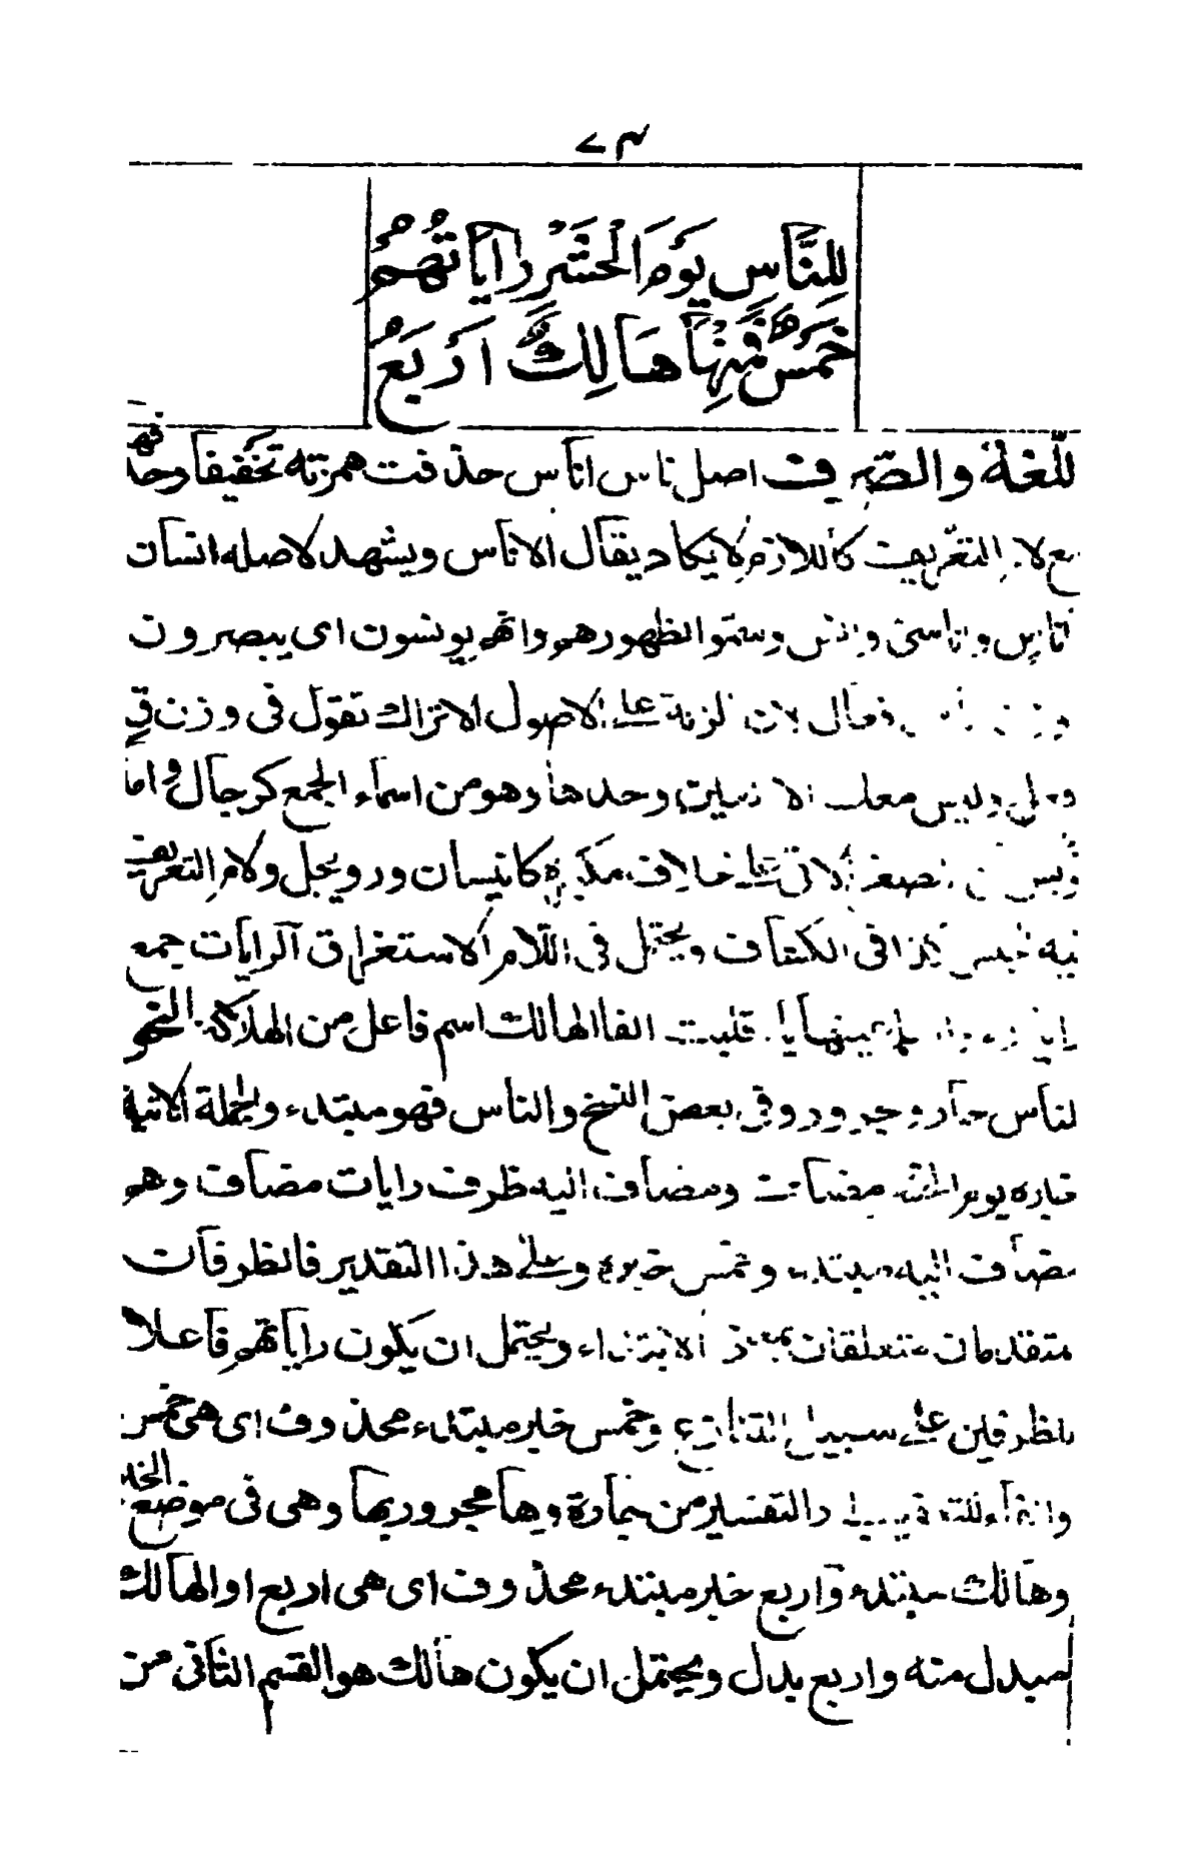 ٧٣
لِلنَّاسِ يَوْمَ الْحَشْرِ رَايَاتُهُمْ
خَمْسٌ فَمِنْهَا هَالِكٌ اَرْبَعُ
للّغة والصّرف اصل ناس اناس حذفت همزته تخفيفا وحذفها
مع لام التعريف كاللازم لا يكاد يقال الاناس ويشهد لاصله انسان
اناس واناسى وانس وسمّوا لظهورهم وانهم يونسون اى يبصرون
فعال لان الزنة على الاصول الا تراك تقول فى وزن قِ
وليس معك الا العين وحدها وهو من اسماء الجمع كرجال واما
نويس من المصغر الاتى على خلاف مكبره كانيسان ورويجل ولام التعريف
فيه للجنس كذا فى الكشاف ويحتمل فى اللام الاستغراق الرايات جمع
قلبت الفا الهالك اسم فاعل من الهلاكة النحو
لناس جار ومجرور وفى بعض النسخ والناس فهو مبتدء والجملة الاتية
خبره يوم الحشر مضاف ومضاف اليه ظرف رايات مضاف وهو
مضاف اليه مبتدء وخمس خبره وعلى هذا التقدير فالظرفان
متقدمان متعلقان الابتداء ويحتمل ان يكون راياتهم فاعلا
للظرفين على سبيل التنازع وخمس خبر مبتدء محذوف اى هى خمس
والفاء للتفسير من جارة وها مجرور بها وهى فى موضع الخبر
وهالك مبتدء واربع خبر مبتدء محذوف اى هى اربع او الهالك
مبدل منه واربع بدل ويحتمل ان يكون هالك هو القسم الثانى من